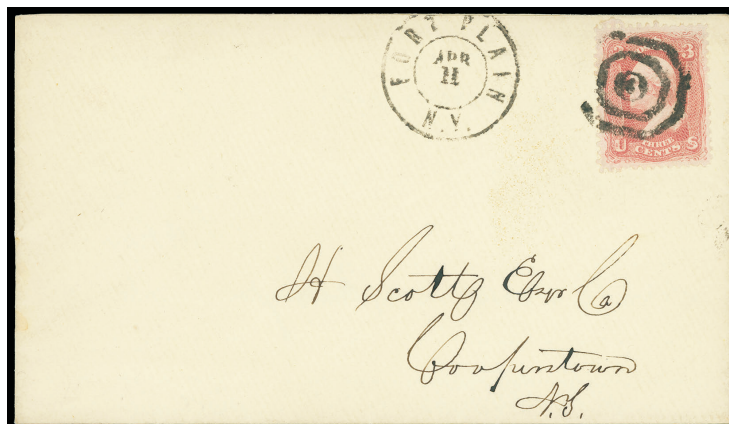 FORT PLAIN
APR
11
N.Y.
3
U S
THREE
CENTS
H Scott Esqr Ca
Cooperstown
N.Y.